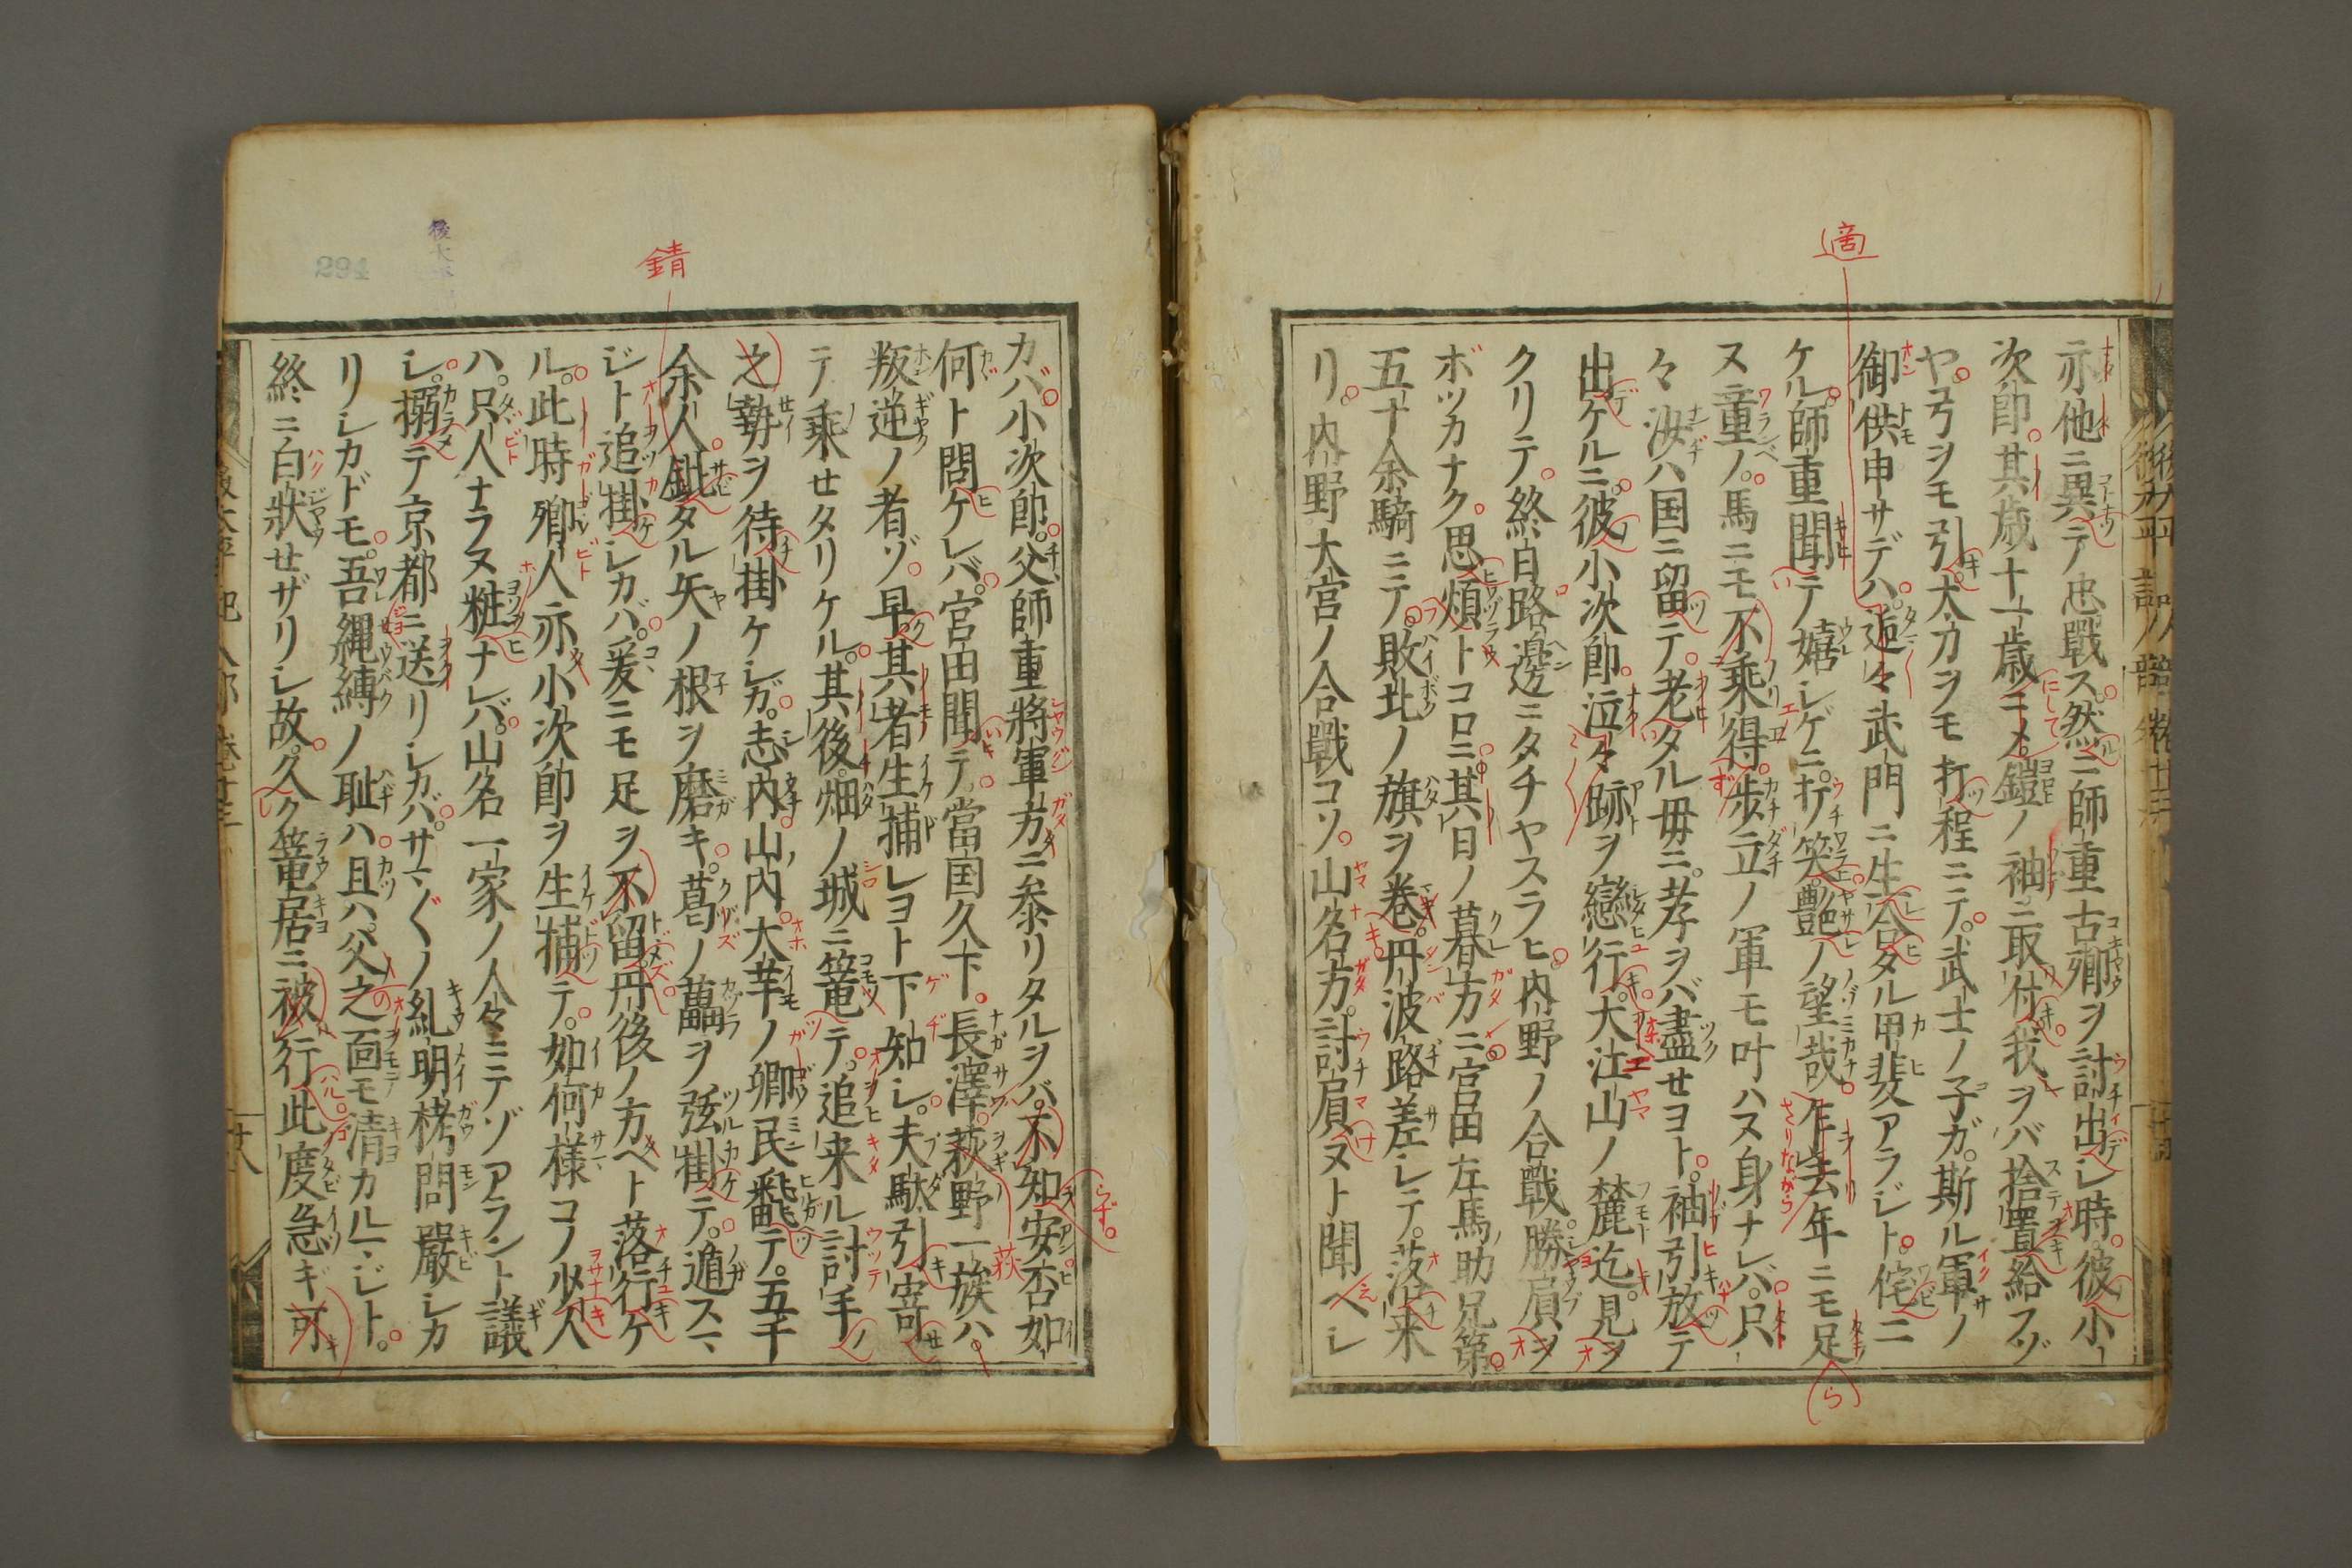 適
亦他ニ異テ忠戰ス。然ニ師重古郷ヲ討出シ時。彼小
次郎。其歳十一歳ニメ。鎧ノ袖ニ取付。我ヲバ捨置給フゾ
ヤ。弓ヲモ引。太刀ヲモ打程ニテ。武士ノ子ガ。斯ル軍ノ
御供申サデハ。逅々武門ニ生合タル甲斐アラジト。侘ニ
ケル。師重聞テ嬉シゲニ。打笑。艶ノ望哉。乍去年ニモ足
ヌ童ノ。馬ニモ不乗得。歩立ノ軍モ叶ハヌ身ナレバ。只
々汝ハ国ニ留テ。老タル毋ニ。孝ヲバ盡セヨト。袖引放テ
出ケルニ。彼小次郎。泣々跡ヲ戀行。大江山ノ麓迄。見ヲ
クリテ。終日路邊ニタチヤスラヒ。内野ノ合戰勝負ヲ
ボツカナク。思煩トコロニ。其日ノ暮方ニ。宮田左馬助兄弟
五十余騎ニテ。敗北ノ旗ヲ巻。丹波路差シテ。落来
リ。内野大宮ノ合戰コソ。山名方。討負ヌト聞ヘシ
錆
カバ。小次郎。父師重將軍方ニ参リタルヲバ。不知安否如
何ト問ケレバ。宮田聞テ。當国久下。長澤。荻野一族ハ。
叛逆ノ者ゾ。早其者生捕レヨト下知シ。夫駄引寄セ
テ乗セタリケル。其後畑ノ城ニ篭テ。追来ル討手
之勢ヲ待掛ケレガ。志内山内。大芋ノ郷民飜テ。五千
余人。鈋タル矢ノ根ヲ磨キ。葛ノ藟ヲ弦掛テ。遁スマ
ジト追掛シカバ。爰ニモ足ヲ不留。丹後ノ方ヘト落行ケ
ル。此時郷人亦小次郎ヲ生捕テ。如何様コノ少人
ハ。只人ナラヌ粧ナレバ。山名一家ノ人々ニテゾアラント議
シ。搦テ京都ニ送リシカバ。サマ〴〵ノ糺明拷問嚴シカ
リシカドモ。吾縄縛ノ耻ハ且ハ父之面モ清カルマジト。
終ニ白狀セザリシ故。久ク篭居ニ被行。此度急ギ可